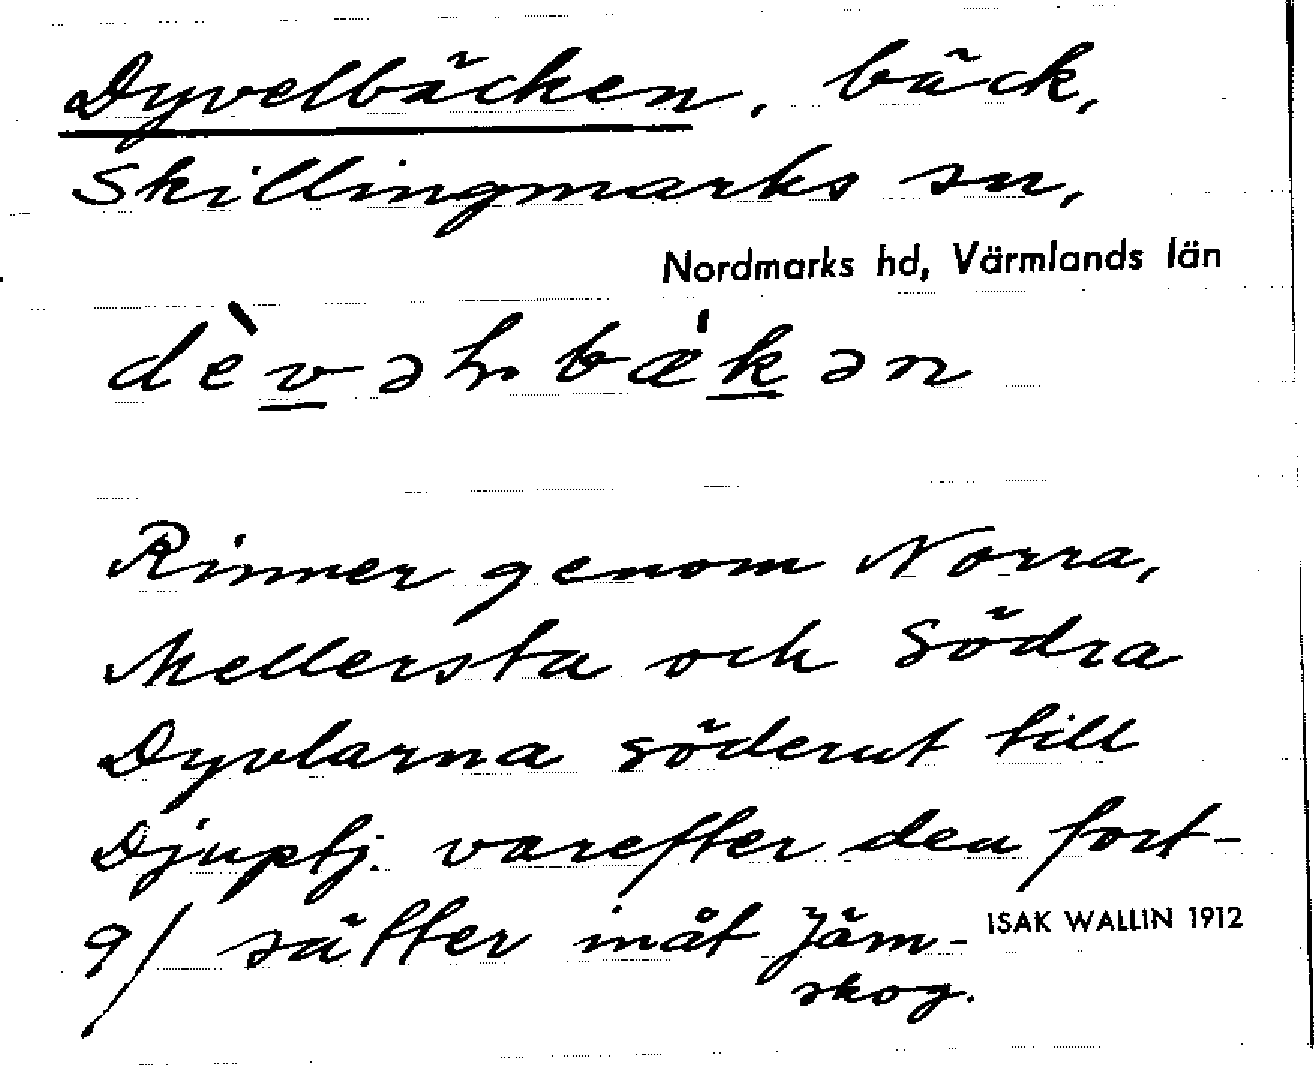 Dyvelbäcken, bäck,
Skillingmarks sn,
Nordmarks hd, Värmlands län
Rinner genom Norra,
Mellersta och Södra
Dyvlarna söderut till
Djuptj. varefter den fort-
9/ sätter inåt Jäm-
skog.
ISAK WALLIN 1912